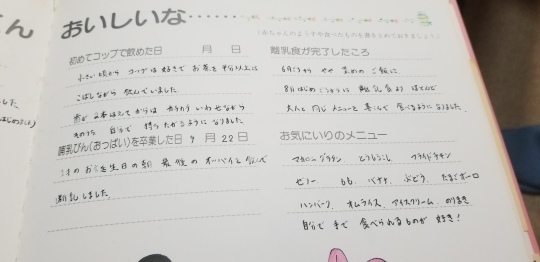 おいしいな……
(赤ちゃんのようすや食べたものを書きとめておきましょう)
初めてコップで飲めた日　月　日
小さい頃から コップは好きで お茶を半分以上は
こぼしながら 飲んでいました
歯が2本はえてからは カチカチ いわせながら
そのうち 自分で 持ちたがるようになりました
哺乳びん(おっぱい)を卒業した日 9月 22日
お誕生日の朝 最後の オーパイを 飲んで
断乳しました
離乳食が完了したころ
6月ごろから やや 柔めの ご飯に
8月はじめ ごろからは 離乳食より ほとんど
大人と 同じ メニューを 喜こんで 食べるようになりました
お気にいりのメニュー
マカロニグラタン とうもろこし フライドチキン
ゼリー もも バナナ ぶどう たまごボーロ
ハンバーグ オムライス アイスクリーム のりまき
自分で 手で 食べられるものが 好き!